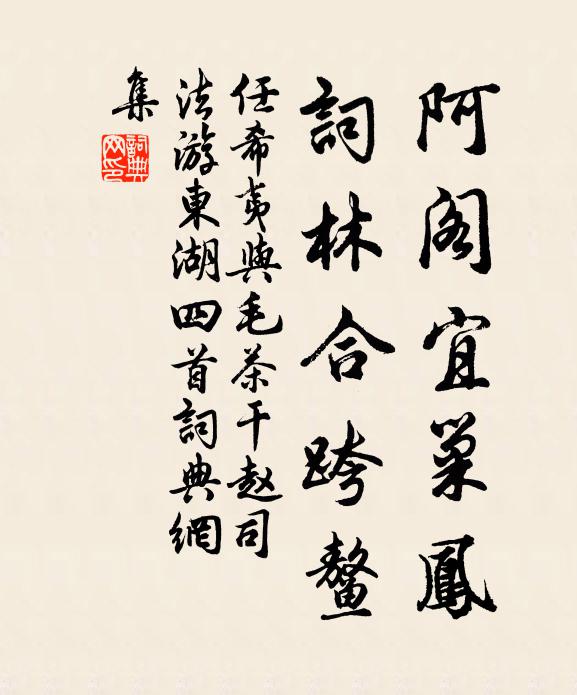 阿阁宜巢鳳
詞林合跨鳌
任希夷與毛茶干赵司
法游東湖四首詞典網
集
詞典
网印